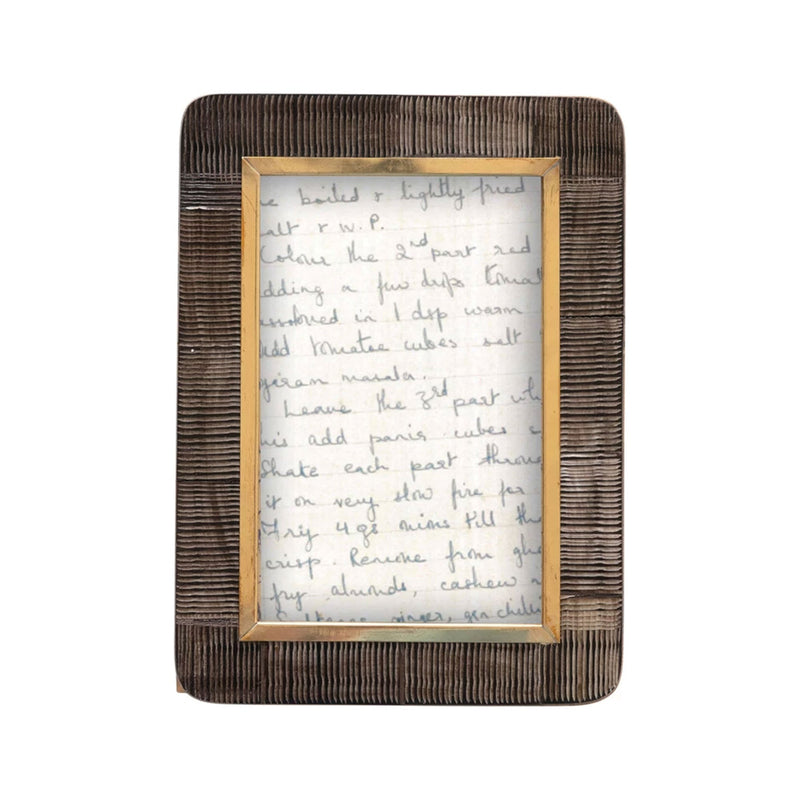 e boiled & lightly fried
alt & W.P.
Colour the 2nd part red
dding a few drops tomat
ssolved in 1 dsp warm
add tomatoe cubes salt
garam masala.
Leave the 3rd part wh
his add panir cubes s
Shake each part throu
it on very slow fire for
Fry 4 gs onions till the
crisp. Remove from ghe
fry almonds, cashew n
Sultanas ginger, gen chilli